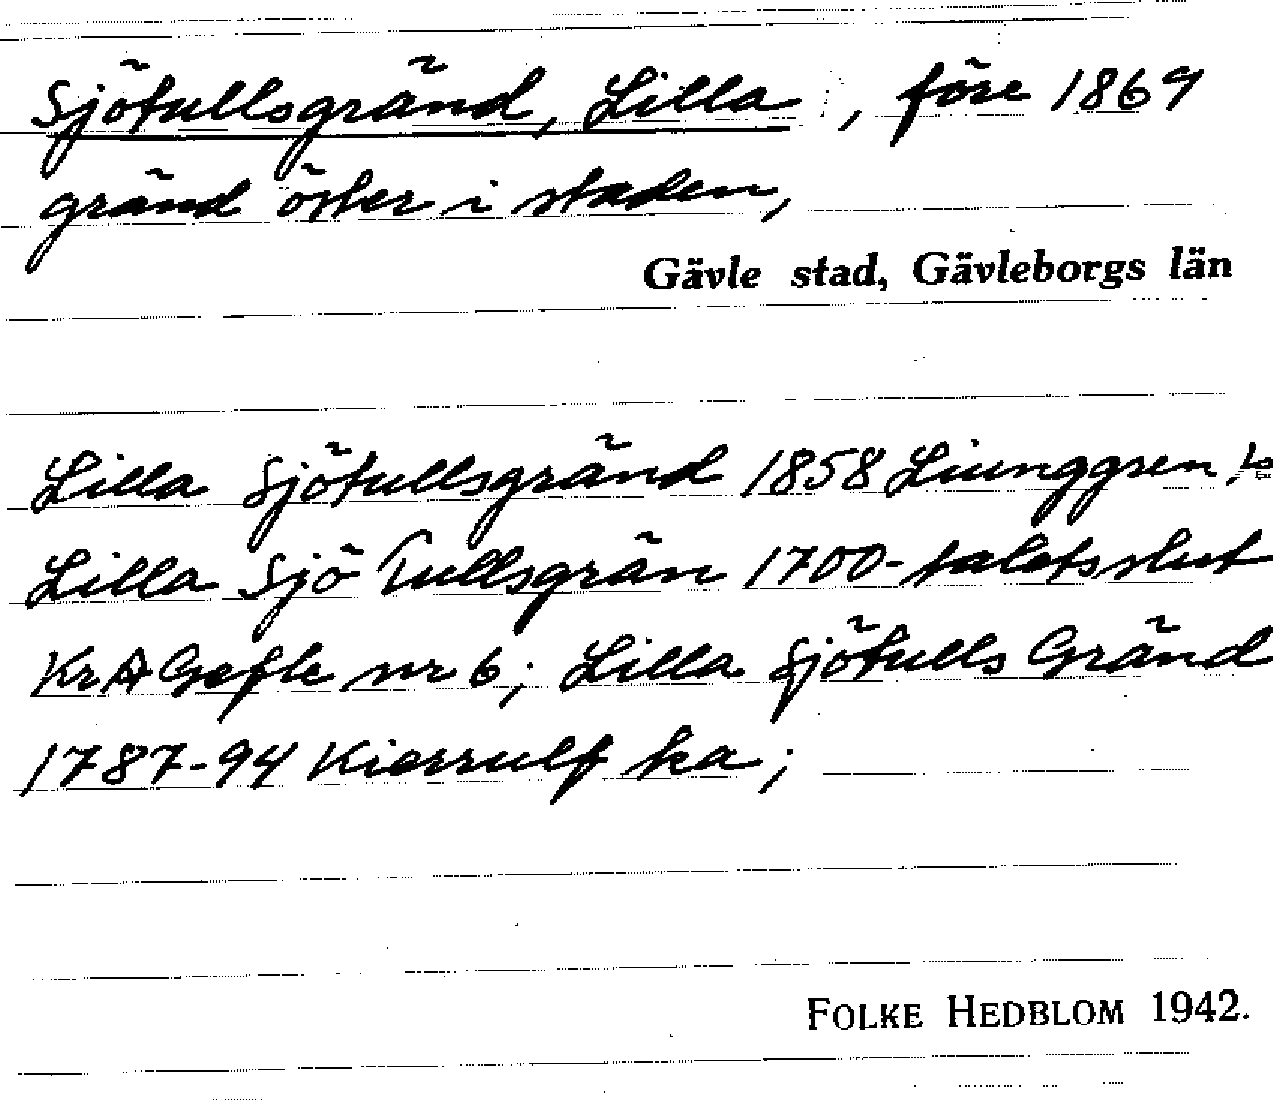 Sjötullsgränd, Lilla, före 1869
gränd öster i staden,
Gävle stad, Gävleborgs län
Lilla Sjötullsgränd 1858 Ljunggren
Lilla Sjö Tullsgrän 1700-talets slut
KrA Gefle nr 6; Lilla Sjötulls Gränd
1787-94 Kierrulf ka;
FOLKE HEDBLOM 1942.